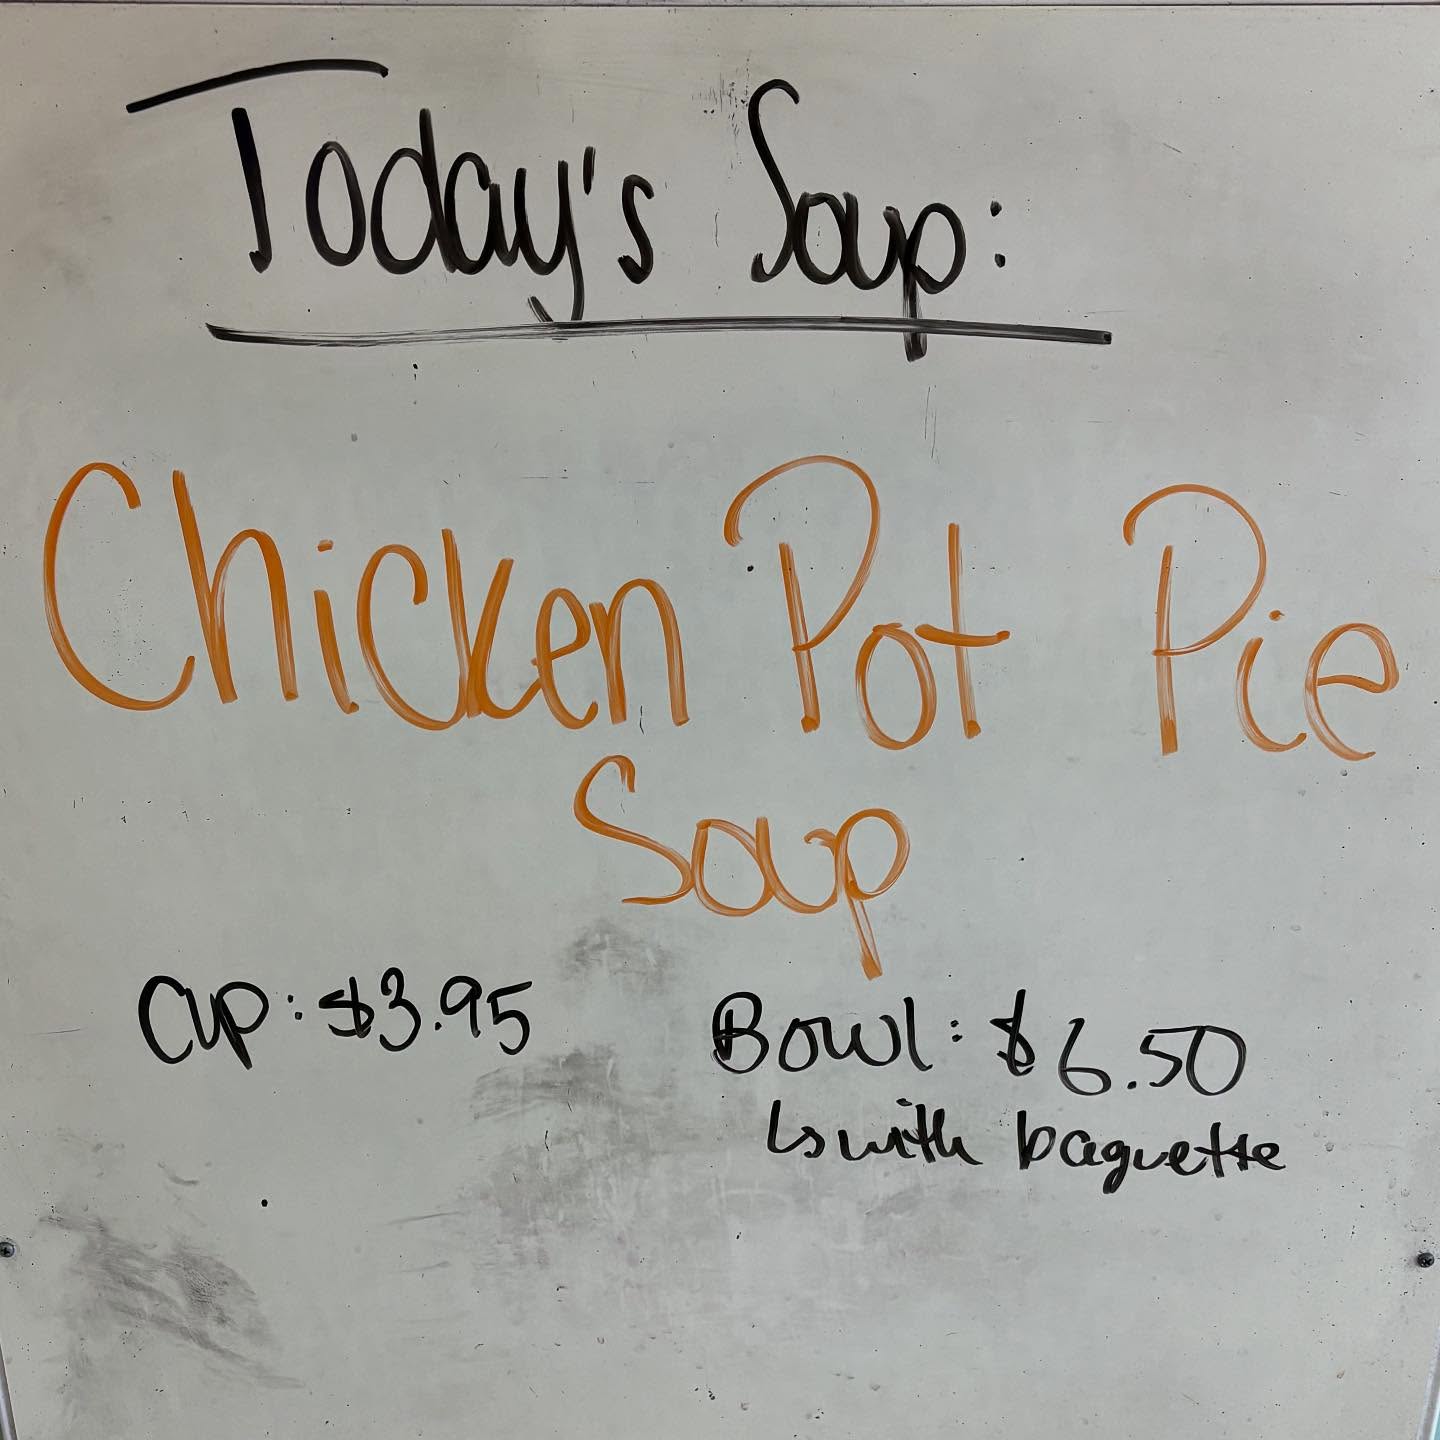 Today's Soup:
Chicken Pot Pie
Soup
Cup: $3.95 Bowl: $6.50
↳ with baguette